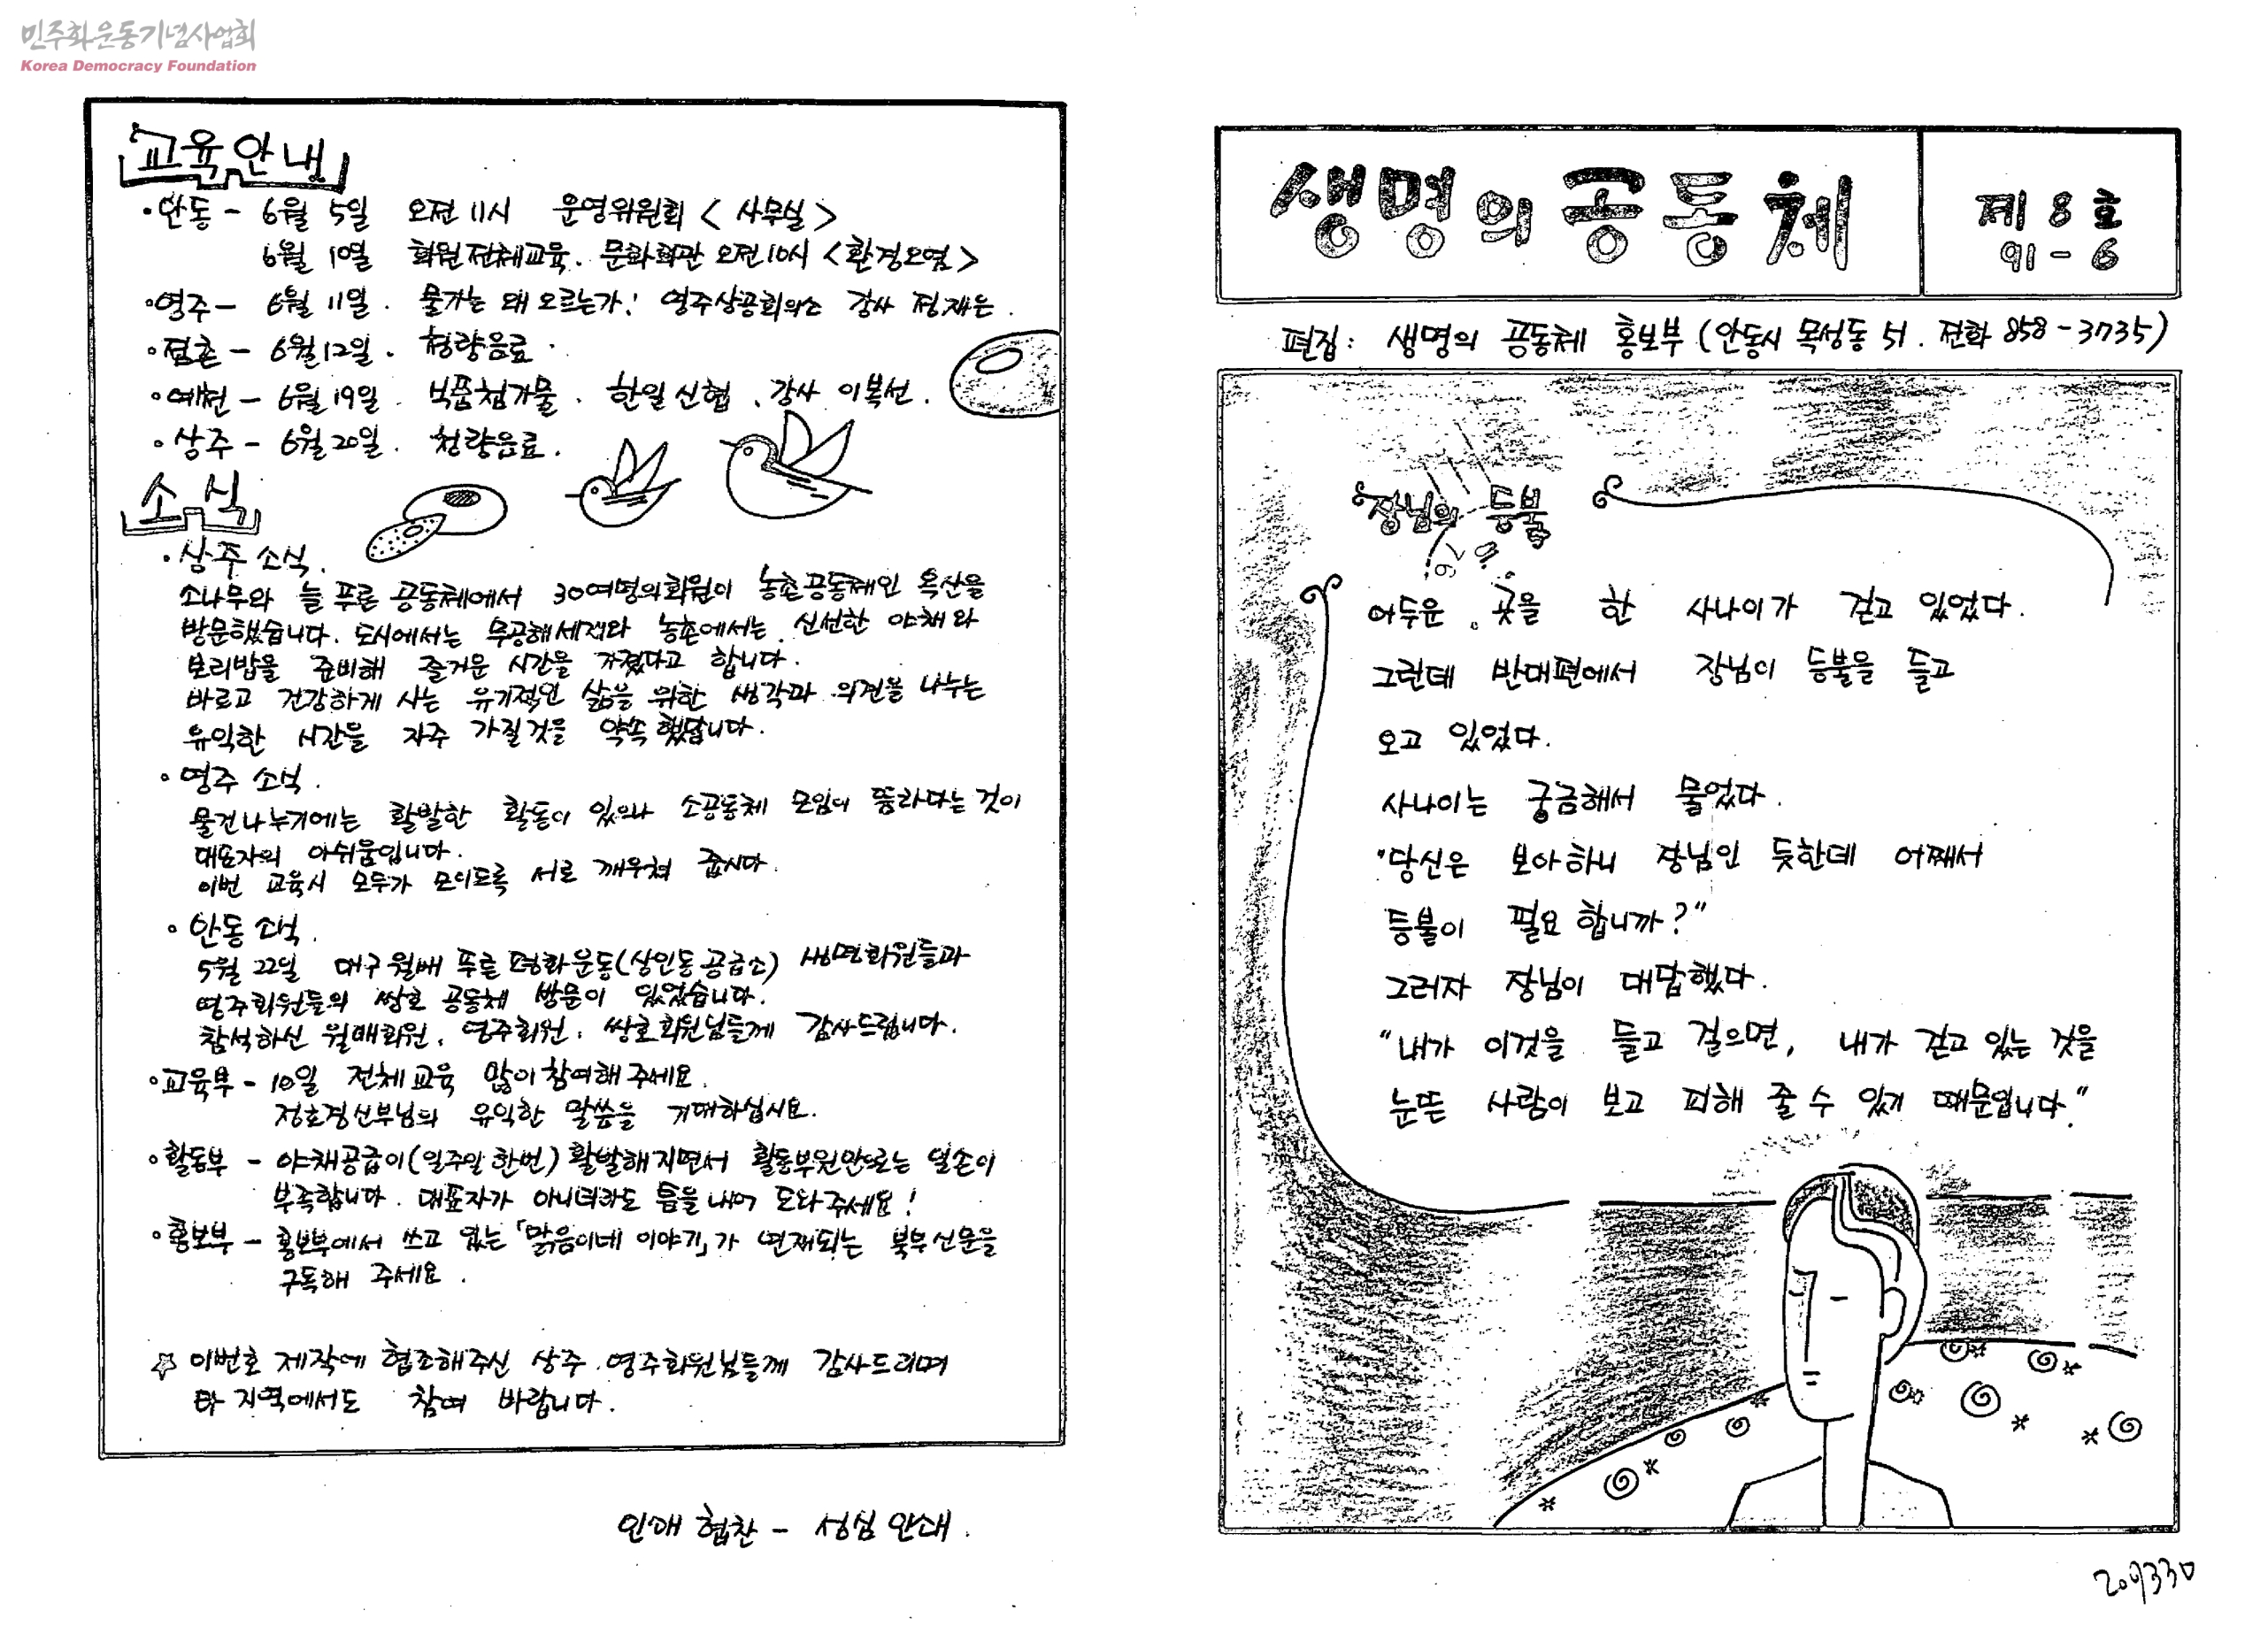 민주화운동기념사업회
Korea Democracy Foundation
교육안내
· 안동 - 6월 5일 오전 11시 운영위원회 < 사무실 >
6월 10일 회원전체교육. 문화회관 오전10시 <환경오염>
· 영주 - 6월 11일. 물가는 왜 오르는가! 영주상공회의소 강사 정재은.
· 점촌 - 6월 12일. 청량음료.
· 예천 - 6월 19일. 식품첨가물. 한일신협. 강사 이복선.
· 상주 - 6월 20일. 청량음료.
소식
· 상주 소식.
소나무와 늘 푸른 공동체에서 30여명의 회원이 농촌공동체인 옥산을
방문했습니다. 도시에서는 무공해세제와 농촌에서는 신선한 야채와
보리밥을 준비해 즐거운 시간을 가졌다고 합니다.
바르고 건강하게 사는 유기적인 삶을 위한 생각과 의견을 나누는
유익한 시간을 자주 가질것을 약속했답니다.
· 영주 소식.
물건나누기에는 활발한 활동이 있으나 소공동체 모임이 뜸하다는 것이
대표자의 아쉬움입니다.
이번 교육시 모두가 모이도록 서로 깨우쳐 줍시다.
· 안동 소식.
5월 22일 대구 월배 푸른 평화운동(상인동공급소) 생명회원들과
영주회원들의 쌍호 공동체 방문이 있었습니다.
참석하신 월배회원, 영주회원, 쌍호회원님들께 감사드립니다.
· 교육부 - 10일 전체교육 많이 참여해 주세요.
정호경신부님의 유익한 말씀을 기대하십시요.
· 활동부 - 야채공급이(일주일 한번) 활발해지면서 활동부원만으로는 일손이
부족합니다. 대표자가 아니더라도 틈을 내어 도와주세요!
· 홍보부 - 홍보부에서 쓰고 있는 「맑음이네 이야기」가 연재되는 북부신문을
구독해 주세요.
☆ 이번호 제작에 협조해주신 상주. 영주회원님들께 감사드리며
타 지역에서도 참여 바랍니다.
인쇄 협찬 - 성심 인쇄.
생명의 공동체
제 8 호
91 - 6
편집: 생명의 공동체 홍보부 (안동시 목성동 51. 전화 858-3735)
장님의 등불
어두운 곳을 한 사나이가 걷고 있었다.
그런데 반대편에서 장님이 등불을 들고
오고 있었다.
사나이는 궁금해서 물었다.
"당신은 보아하니 장님인 듯한데 어째서
등불이 필요 합니까?"
그러자 장님이 대답했다.
"내가 이것을 들고 걸으면, 내가 걷고 있는 것을
눈뜬 사람이 보고 피해 줄 수 있기 때문입니다."
209330